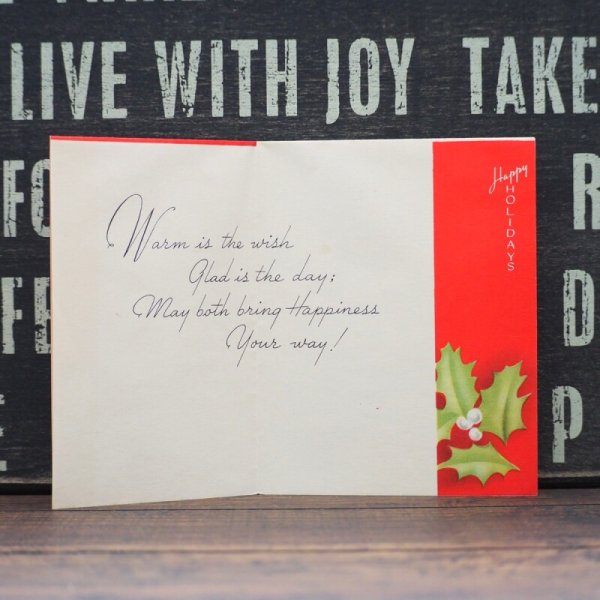 LIVE WITH JOY TAKE
Happy
HOLIDAYS
Warm is the wish
Glad is the day;
May both bring Happiness
Your way!